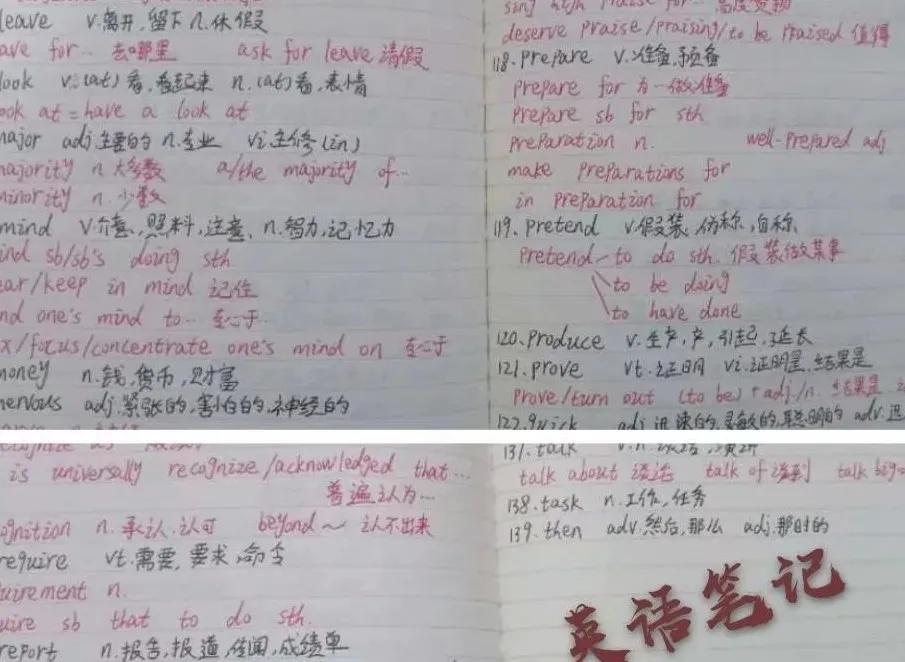 leave v.离开,留下 n.休假
ave for… 去哪里 ask for leave 请假
look v.(at)看,看起来 n.(at)看,表情
ook at = have a look at
major adj.主要的 n.专业 vi.主修(in)
majority n.大多数 a/the majority of…
minority n.少数
mind v.介意,照料,注意 n.智力,记忆力
ind sb/sb's doing sth
ear/keep in mind 记住
nd one's mind to…
x/focus/concentrate one's mind on
money n.钱,货币,财富
nervous adj.紧张的,害怕的,神经的
is universally recognize/acknowledged that…
普遍认为…
ognition n.承认,认可 beyond~ 认不出来
require vt.需要,要求,命令
uirement n.
uire sb that to do sth.
report n.报告,报道,传闻,成绩单
sing high praise for…
deserve praise/praising/to be praised 值得
118.prepare v.准备,预备
prepare for 为…做准备
prepare sb for sth
preparation n. well-prepared adj
make preparations for
in preparation for
119.pretend v.假装,仿称,自称
pretend to do sth.假装做某事
to be doing
to have done
120.produce v.生产,产,引起,延长
121.prove vt.证明 vi.证明是,结果是
prove/turn out (to be)+adj/n. 结果是
122.quick adj.迅速的,灵敏的,聪明的 adv.迅
talk v.n.谈话,演讲
talk about 谈论 talk of 谈到 talk big
138.task n.工作,任务
139.then adv.然后,那么 adj.那时的
英语笔记